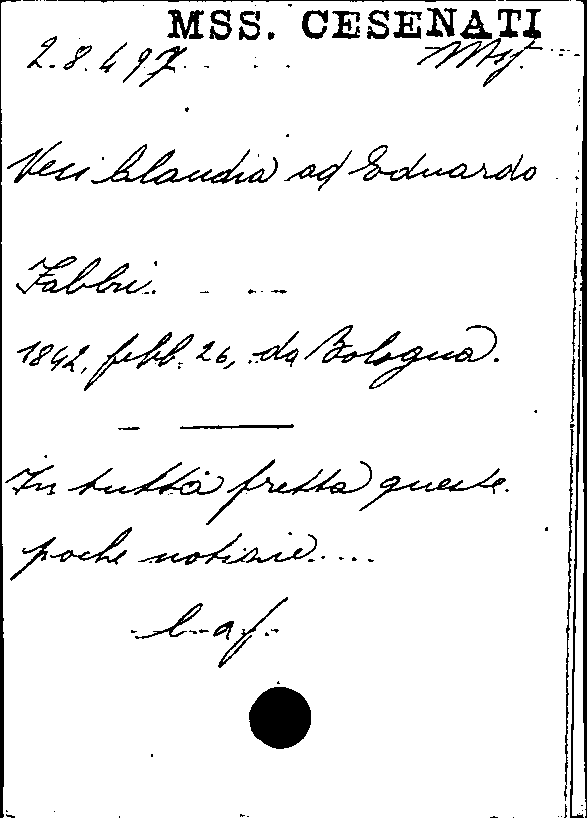 MSS. CESENATI
2.8.497 Msf.
Veri Claudia ad Eduardo
Fabbri.
1842, febb. 26, da Bologna.
In tutta fretta queste
poche notizie....
c. af.